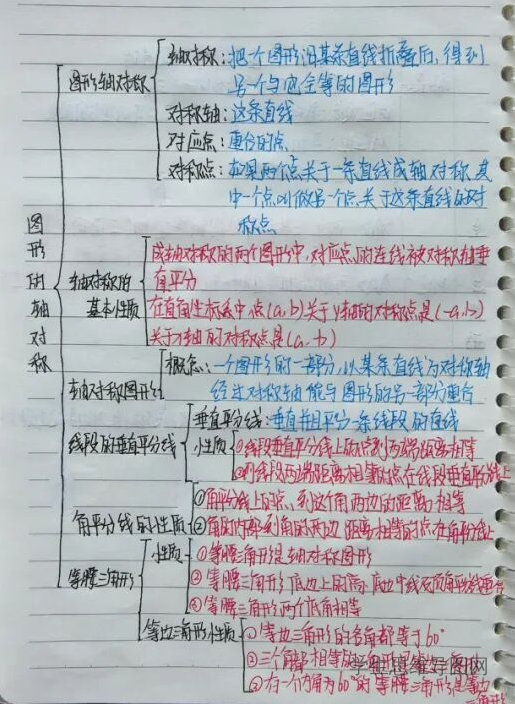 图形的轴对称
图形轴对称
轴对称：把一个图形沿某条直线折叠后，得到
另一个与它全等的图形
对称轴：这条直线
对应点：重合的点
对称点：如果两个点关于一条直线成轴对称，其
中一个点叫做另一个点关于这条直线的对
称点
轴对称的
基本性质
成轴对称的两个图形中，对应点的连线被对称轴垂
直平分
在直角坐标系中点(a,b)关于y轴的对称点是(-a,b)
关于x轴的对称点是(a,-b)
轴对称图形
概念：一个图形的一部分，以某条直线为对称轴
经过对称轴能与图形的另一部分重合
线段的垂直平分线
垂直平分线：垂直并且平分一条线段的直线
性质
①线段垂直平分线上的点到两端距离相等
②到线段两端距离相等的点在线段垂直平分线上
角平分线的性质
①角平分线上的点，到这个角两边的距离相等
②角的内部到角的两边距离相等的点在角平分线上
等腰三角形
性质
①等腰三角形是轴对称图形
②等腰三角形底边上的高、底边中线及顶角平分线重合
③等腰三角形两个底角相等
等边三角形性质
①等边三角形的各角都等于60°
②三个角都相等的三角形是
③有一个内角为60°的等腰三角形是等边
三角形
思维导图网